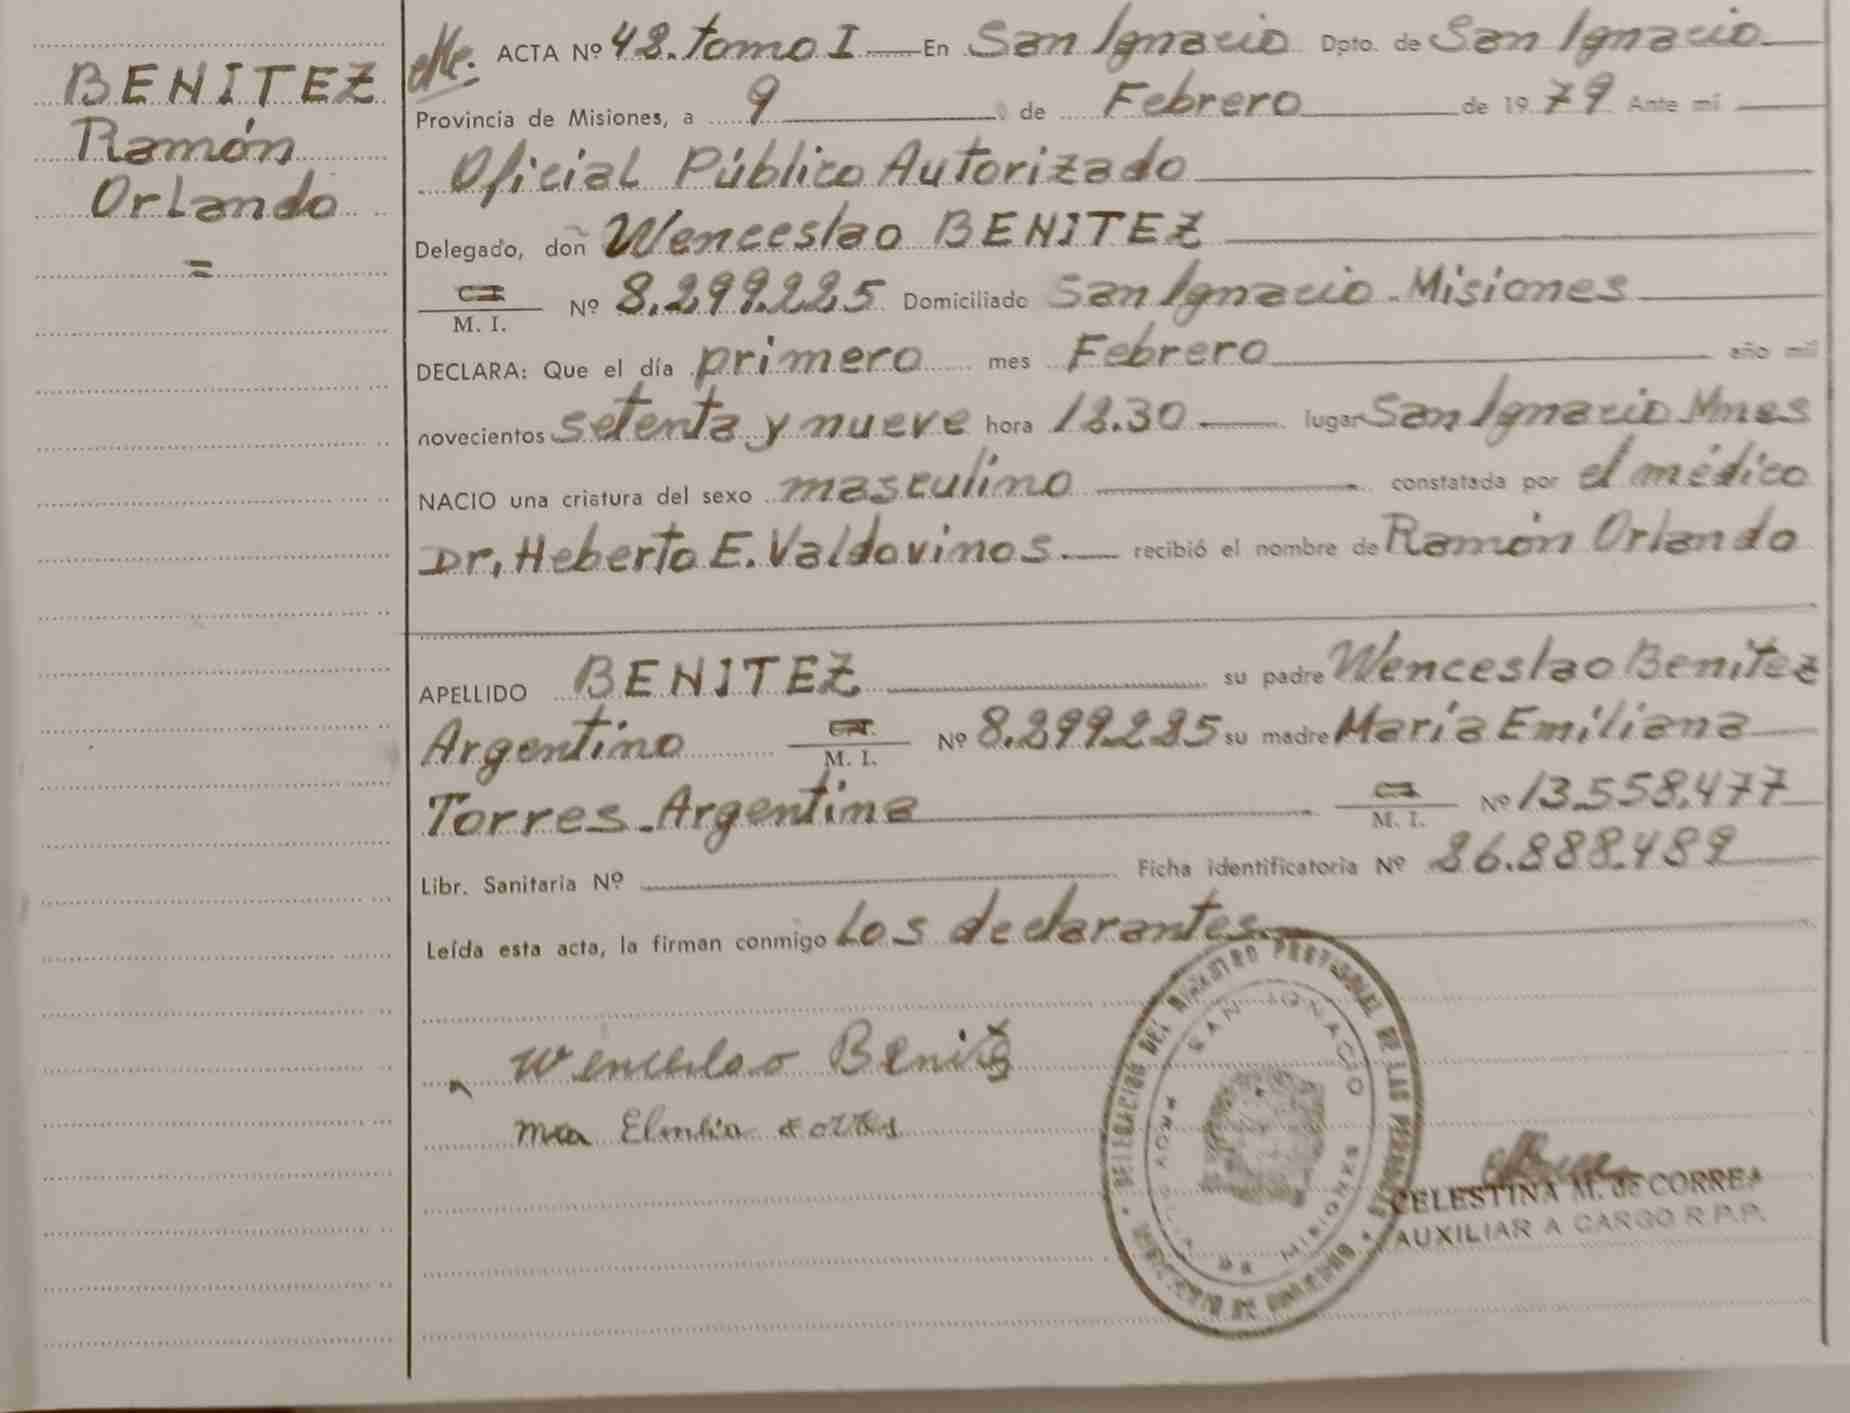 BENITEZ
Ramón
Orlando
=
ACTA Nº 48. tomo I En San Ignacio Dpto. de San Ignacio
Provincia de Misiones, a 9 de Febrero de 1979 Ante mí
Oficial Público Autorizado
Delegado, don Wenceslao BENITEZ
M. I. Nº 8.299.225 Domiciliado San Ignacio - Misiones
DECLARA: Que el día primero mes Febrero año mil
novecientos setenta y nueve hora 18.30 lugar San Ignacio Mnes
NACIO una criatura del sexo masculino constatada por el médico
Dr. Heberto E. Valdovinos. recibió el nombre de Ramón Orlando
APELLIDO BENITEZ su padre Wenceslao Benitez
Argentino M. I. Nº 8.299.225 su madre María Emiliana
Torres - Argentina M. I. Nº 13.558.477
Libr. Sanitaria Nº Ficha identificatoria Nº 26.888.489
Leída esta acta, la firman conmigo Los declarantes.
Wenceslao Benitez
DELEGACION DEL REGISTRO PROVINCIAL DE LAS PERSONAS
SAN IGNACIO
MISIONES
CELESTINA M. de CORREA
AUXILIAR A CARGO R.P.P.